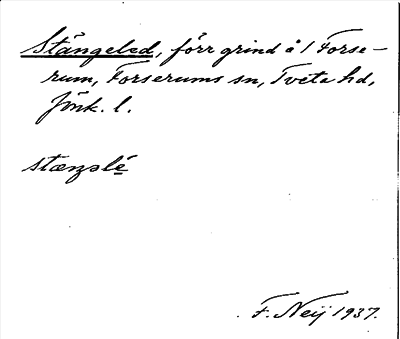 Stängeled, förr grind å 1 Forse-
rum, Forserums sn, Tveta hd,
Jönk. l.
stæŋəlé
F. Neij 1937.